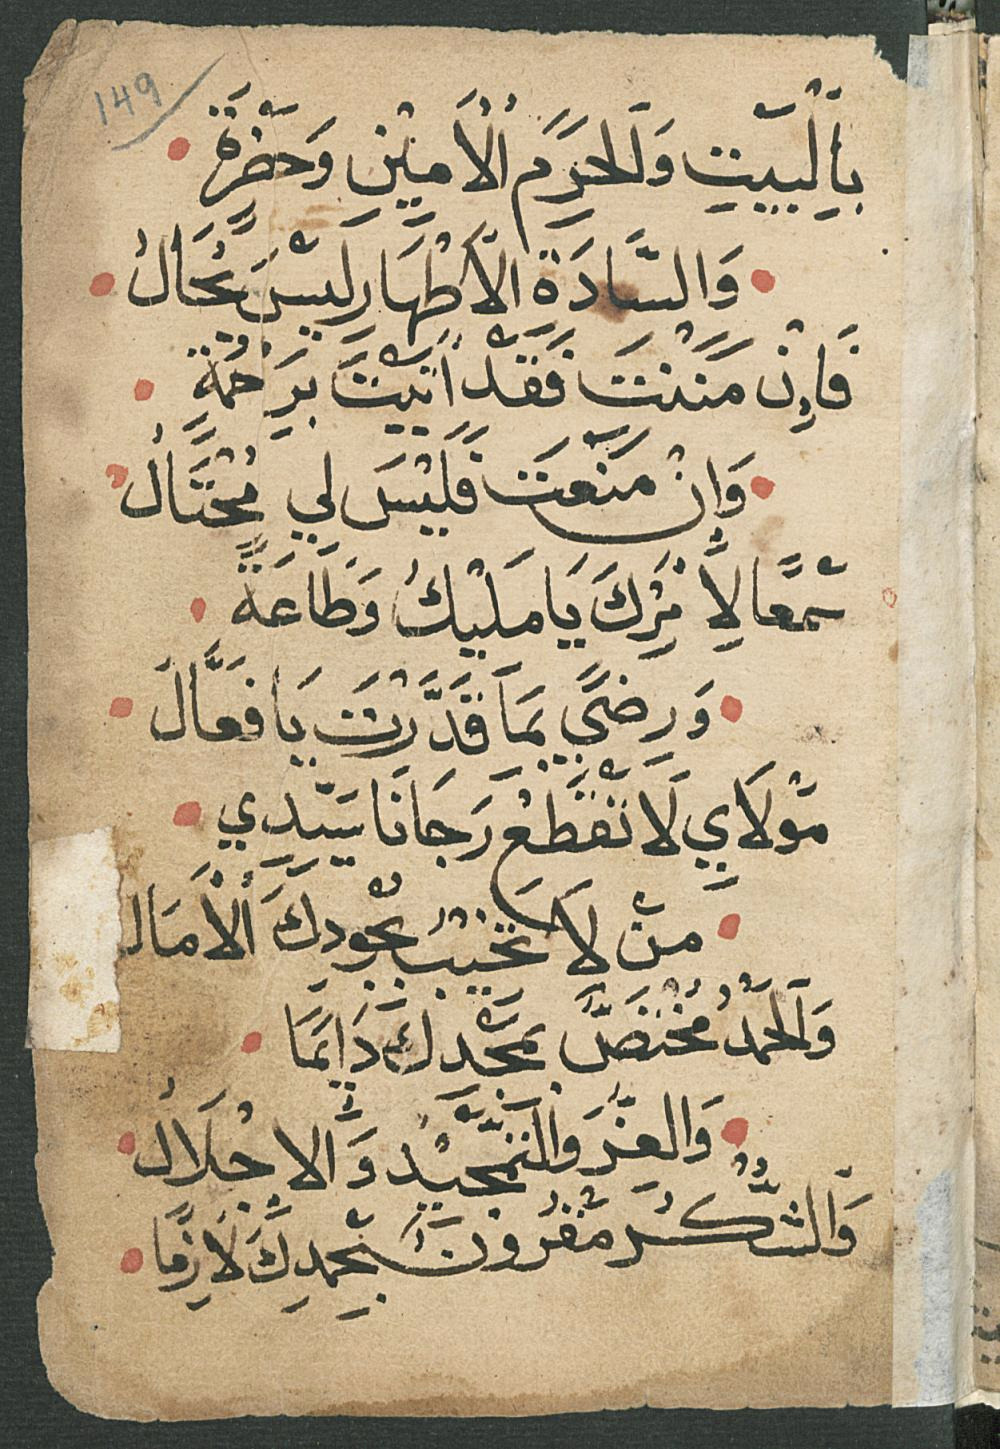 149
بِالْبَيْتِ وَالْحَرَمِ الْأَمِيْنِ وَحَضْرَةِ
وَالسَّادَةِ الْأَطْهَارِ لَيْسَ يُحَالُ
فَإِنْ مَنَنْتَ فَقَدْ أَتَيْتَ بِرَحْمَةٍ
وَإِنْ مَنَعْتَ فَلَيْسَ لِي مُحْتَالُ
سَمْعًا لِأَمْرِكَ يَا مَلِيْكُ وَطَاعَةً
وَرِضًى بِمَا قَدَّرْتَ يَا فَعَّالُ
مَوْلَايِ لَا تَقْطَعْ رَجَانَا سَيِّدِي
مَنْ لَا تَخِيْبُ بِجُودِكَ الْأَمَالُ
وَالْحَمْدُ مُخْتَصٌّ بِمَجْدِكَ دَايِمًا
وَالعِزُّ وَالتَّمْجِيْدُ وَالاِجْلَالُ
وَالشُّكْرُ مَقْرُونٌ بِحَمْدِكَ لَازِمًا